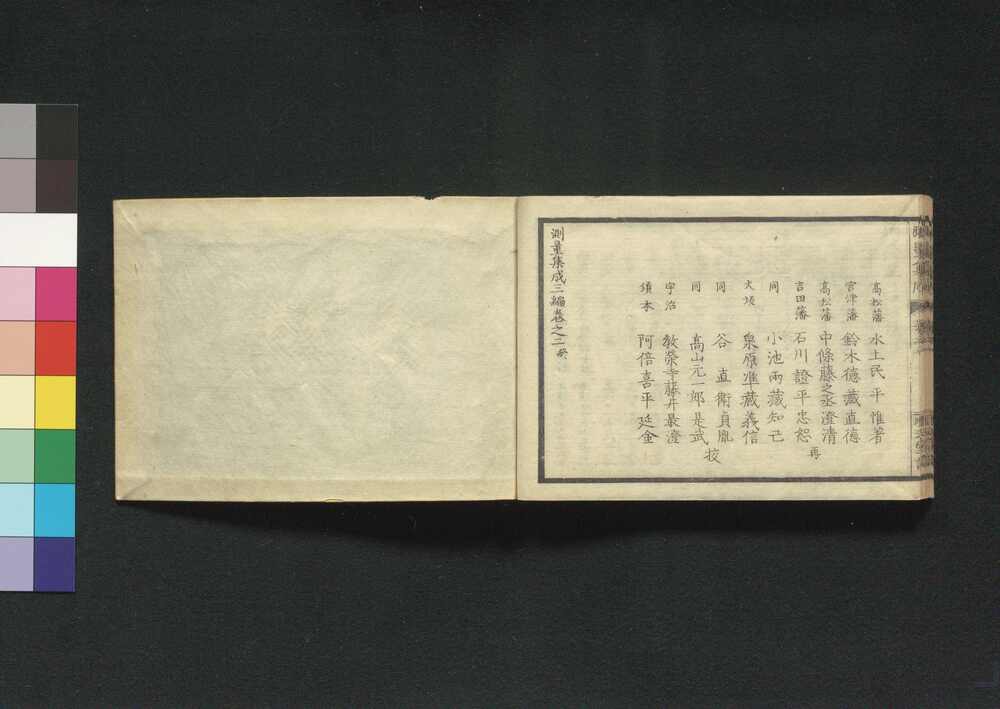 高松藩 水土民平惟著
宮津藩 鈴木德藏直德
高松藩 中條藤之丞澄清
吉田藩 石川證平忠恕
同 小池兩藏知己
大坂 泉原準藏義信
同 谷直衛貞胤
同 高山元一郎是武
宇治 教榮寺藤井最澄
須本 阿倍喜平延金
再
挍
測量集成三編卷之二終